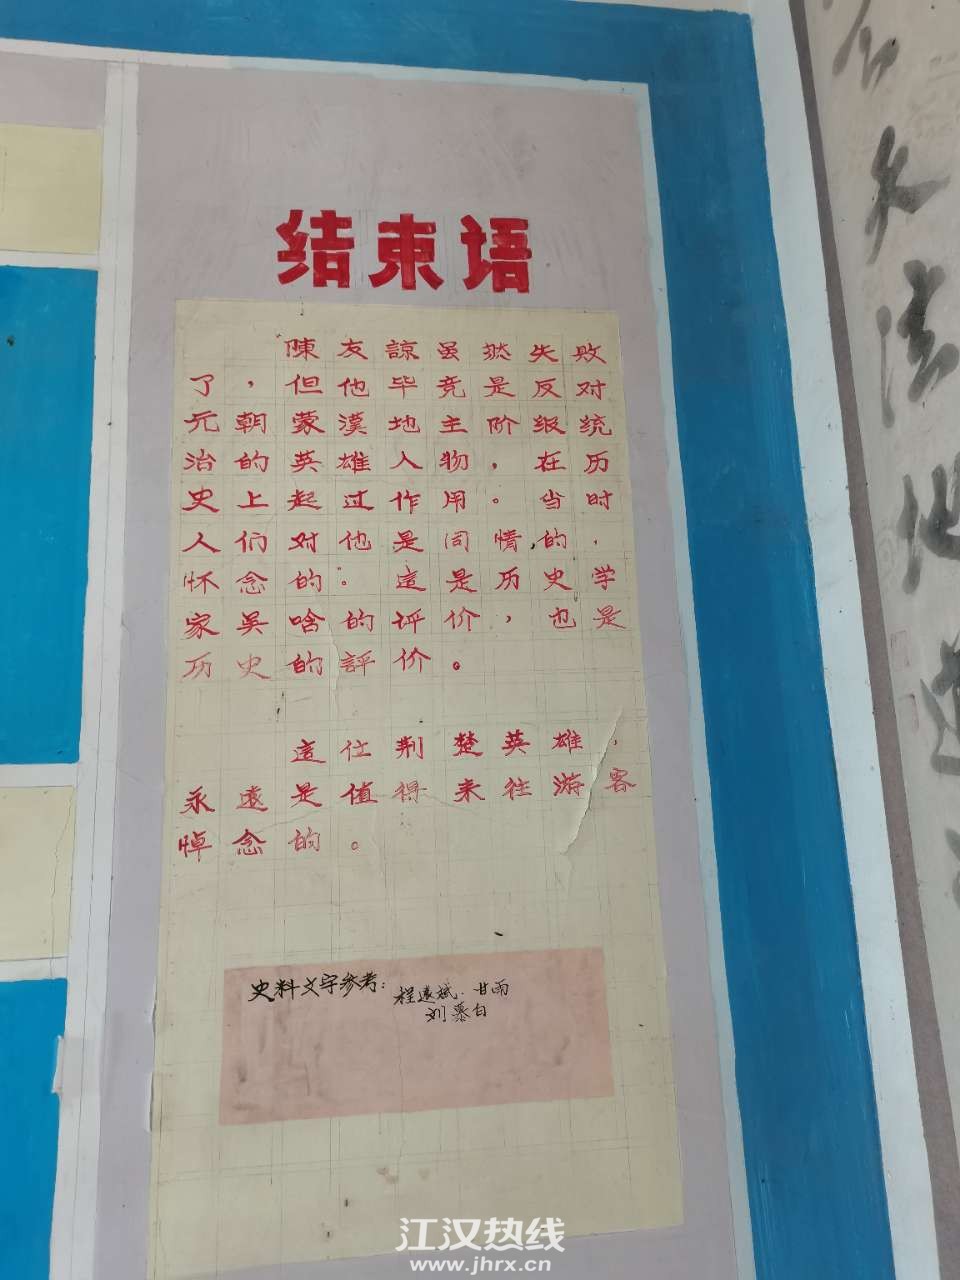 结束语
陳友諒虽然失败
了，但他毕竟是反对
元朝蒙漢地主阶级统
治的英雄人物，在历
史上起过作用。当时
人们对他是同情的，
怀念的。這是历史学
家吴啥的评价，也是
历史的評价。
這位荆楚英雄，
永遠是值得来往游客
悼念的。
史料文字参考：程遠斌．甘雨
刘慕白
法地
江汉热线
www.jhrx.cn